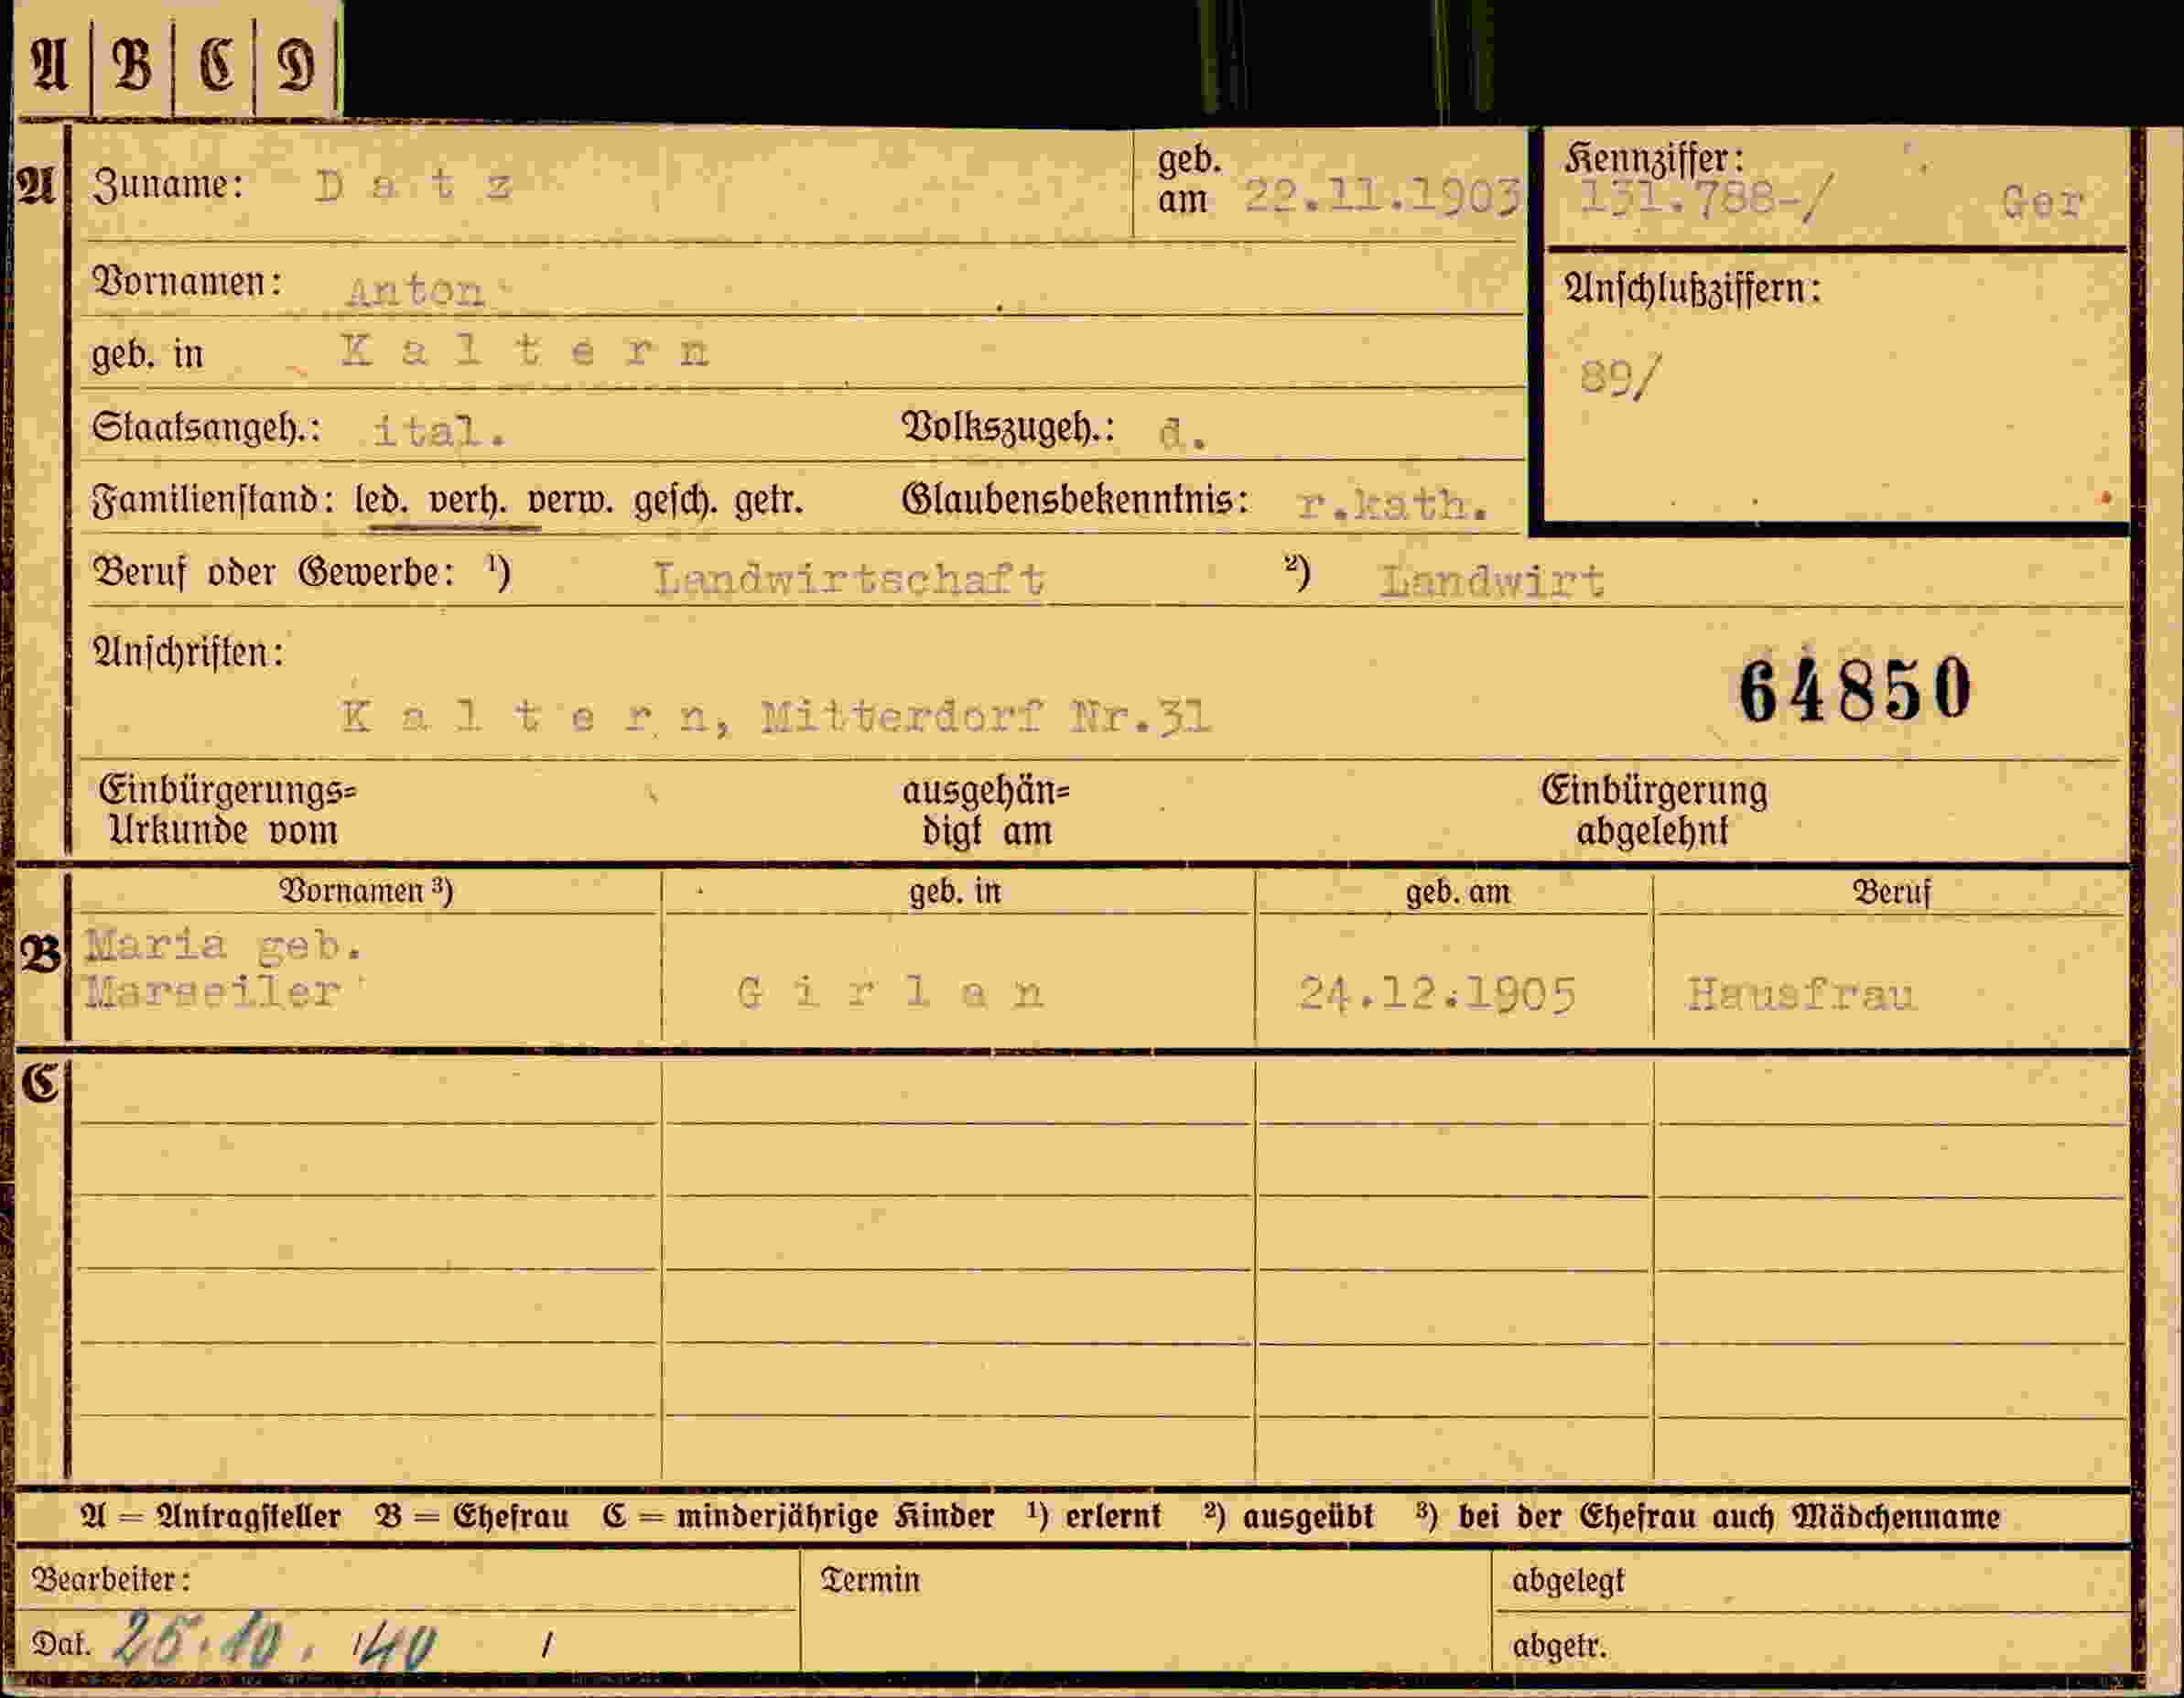 A B C D
A Zuname: Datz geb. am 22.11.1903 Kennziffer: 131.788-/ Ger
Vornamen: Anton
geb. in Kaltern
Anschlußziffern: 89/
Staatsangeh.: ital. Volkszugeh.: d.
Familienstand: led. verh. verw. gesch. getr. Glaubensbekenntnis: r.kath.
Beruf oder Gewerbe: ¹) Landwirtschaft ²) Landwirt
Anschriften:
64850
Kaltern, Mitterdorf Nr.31
Einbürgerungs= ausgehän= Einbürgerung
Urkunde vom digt am abgelehnt
Vornamen ³) geb. in geb. am Beruf
B Maria geb.
Marseiler Girlan 24.12.1905 Hausfrau
C
A = Antragsteller B = Ehefrau C = minderjährige Kinder ¹) erlernt ²) ausgeübt ³) bei der Ehefrau auch Mädchenname
Bearbeiter: Termin abgelegt
Dat. 25.10. 40 / abgetr.